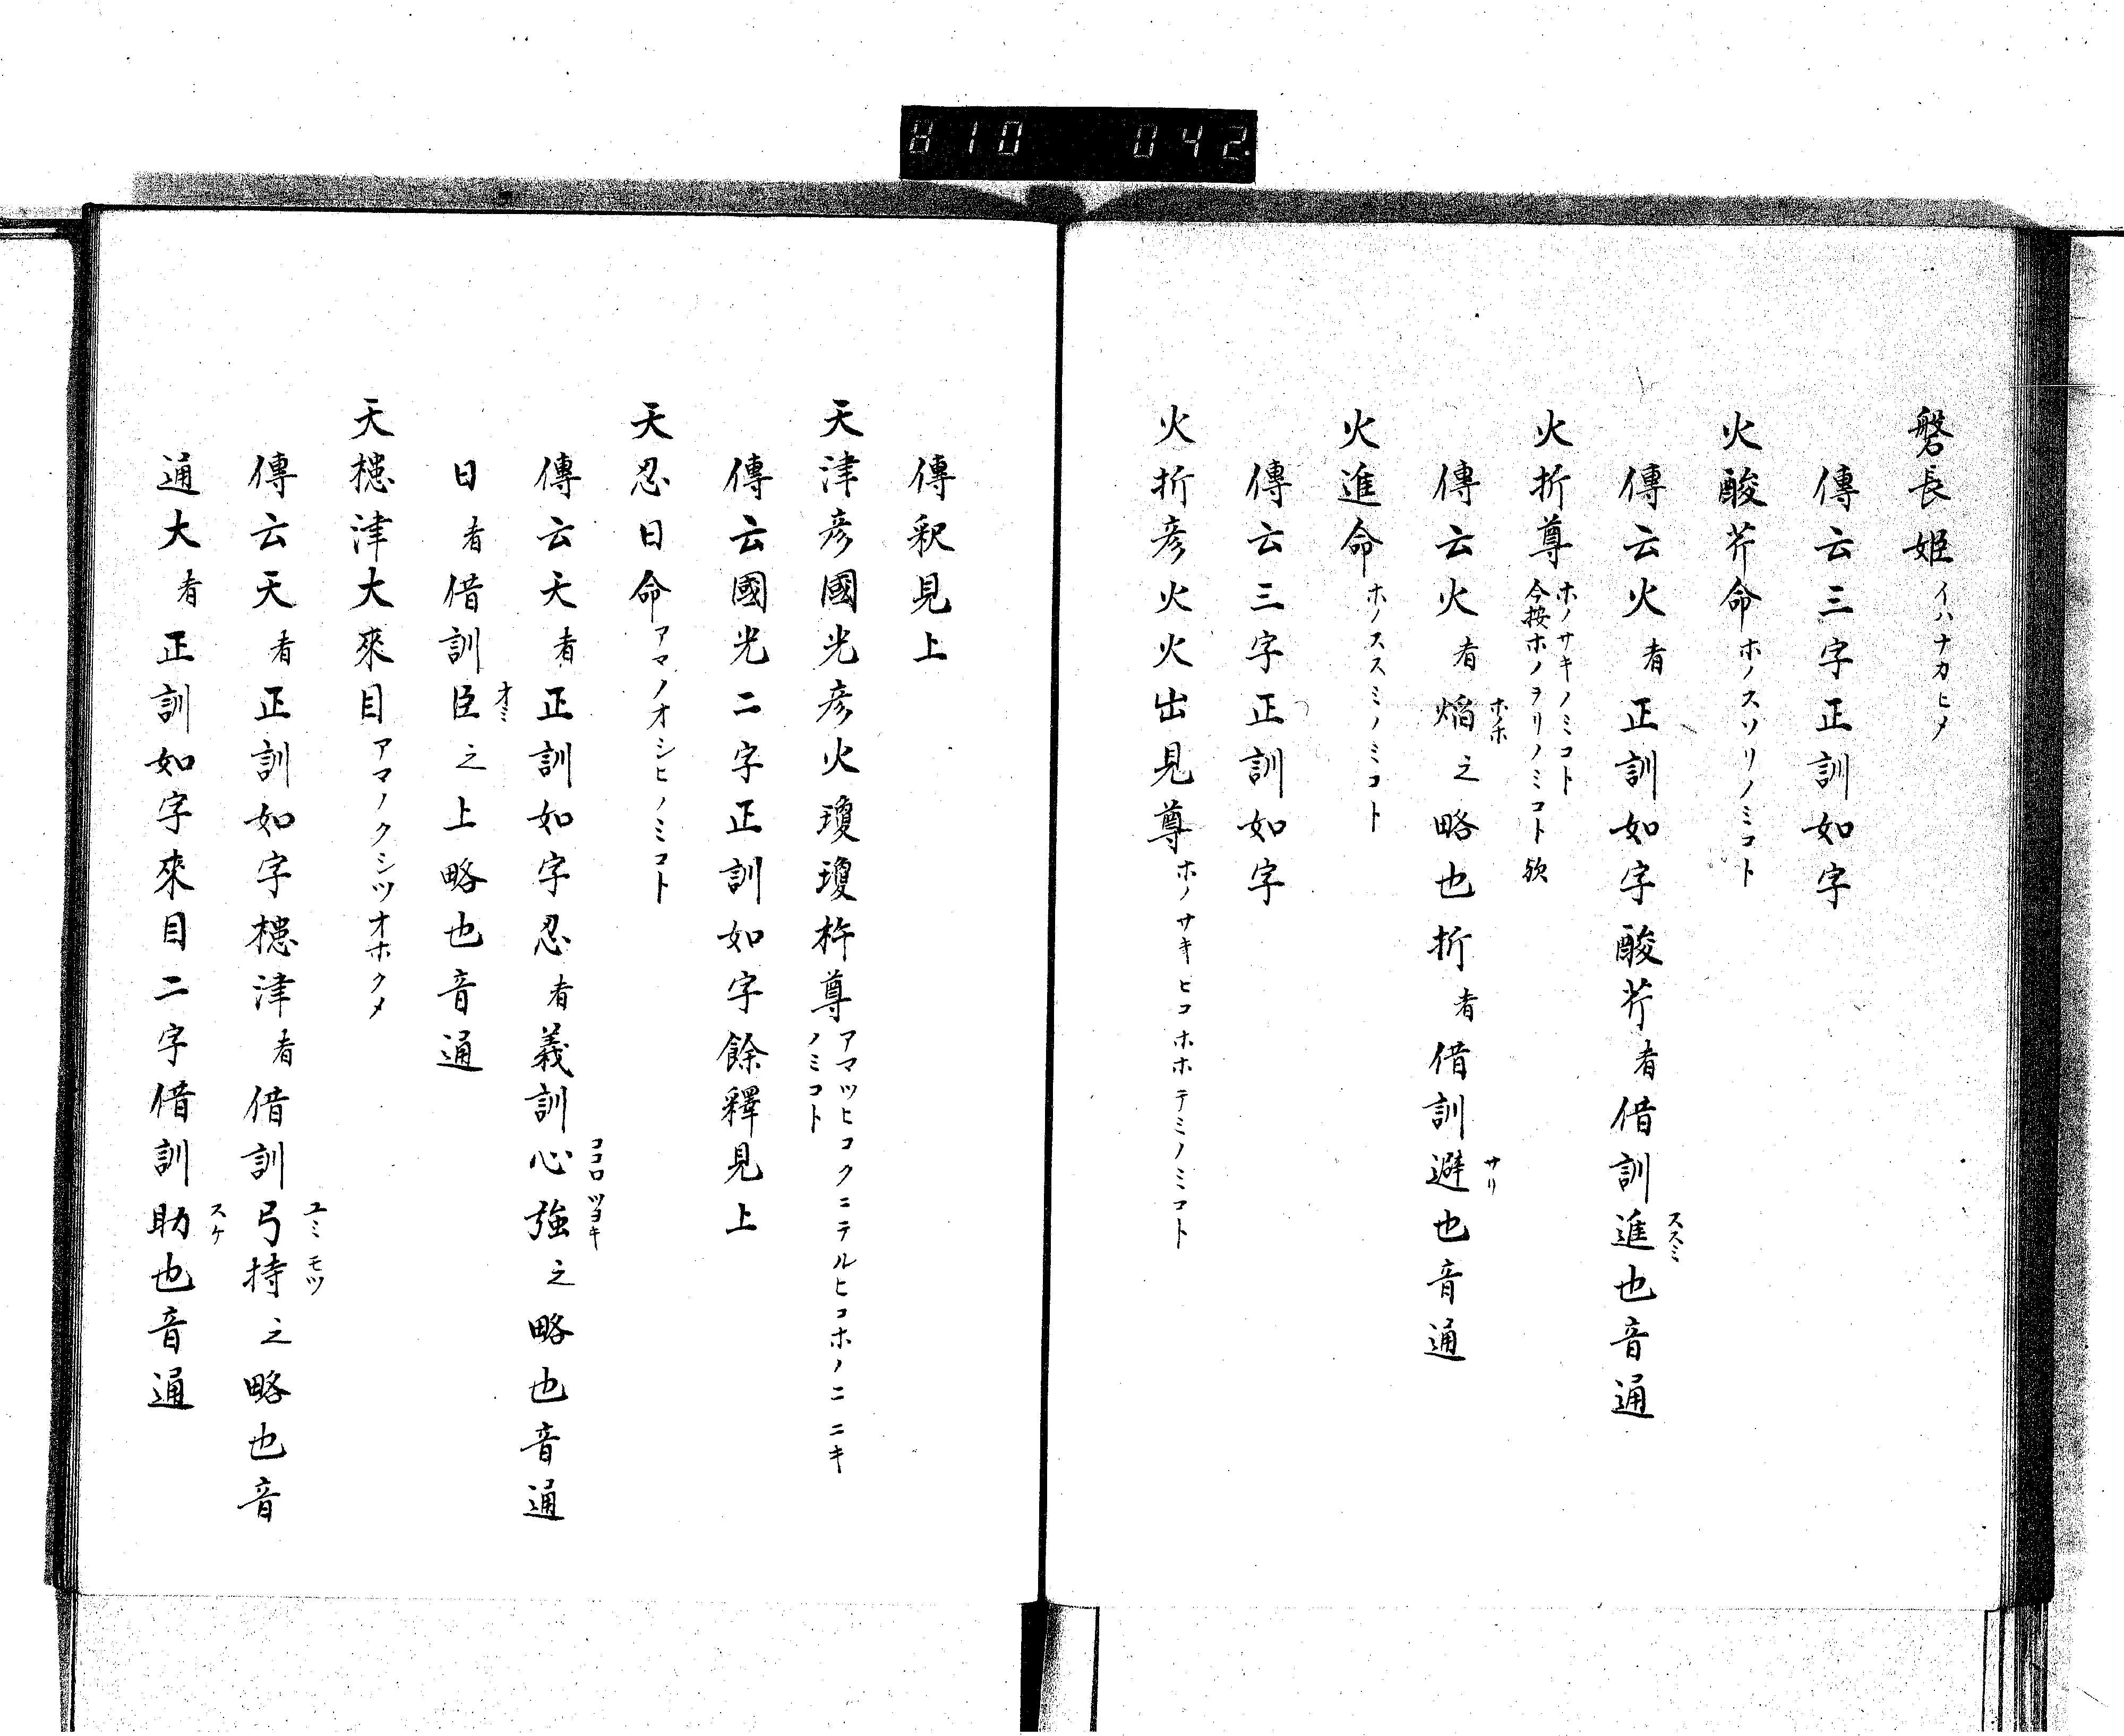 810 042.
磐長姫イハナカヒメ
傳云三字正訓如字
火酸芹命ホノスソリノミコト
傳云火者正訓如字酸芹者借訓進ススミ也音通
火折尊ホノサキノミコト今按ホノヲリノミコト欤
傳云火者焔ホホ之略也折者借訓避サリ也音通
火進命ホノススミノミコト
傳云三字正訓如字
火折彦火火出見尊ホノサキヒコホホテミノミコト
傳釈見上
天津彦國光彦火瓊瓊杵尊アマツヒコクニテルヒコホノニニキノミコト
傳云國光二字正訓如字餘釋見上
天忍日命アマノオシヒノミコト
傳云天者正訓如字忍者義訓心強ココロツヨキ之略也音通
日者借訓臣オミ之上略也音通
天槵津大來目アマノクシツオホクメ
傳云天者正訓如字槵津者借訓弓持ユミモツ之略也音
通大者正訓如字來目二字借訓助スケ也音通